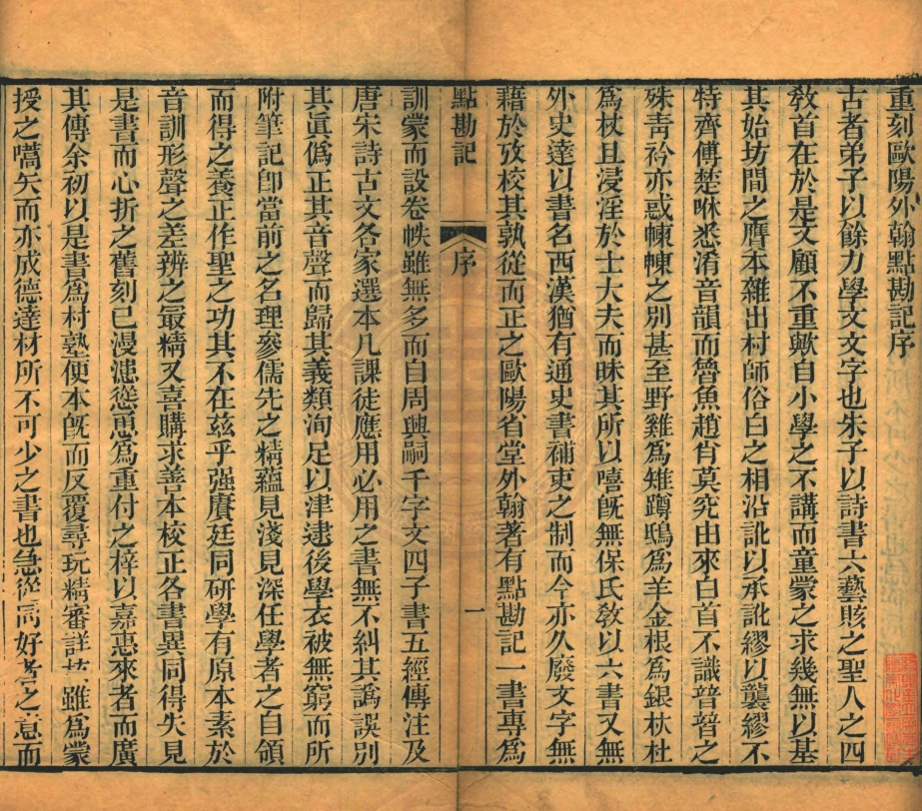 重刻歐陽外翰點勘記序
古者弟子以餘力學文文字也朱子以詩書六藝賅之聖人之四
敎首在於是文顧不重歟自小學之不講而童蒙之求幾無以基
其始坊間之贗本雜出村師俗臼之相沿訛以承訛繆以襲繆不
特齊傅楚咻悉淆音韻而魯魚趙肯莫究由來白首不識之
殊靑衿亦惑之別甚至野雞爲雉蹲鴟爲羊金根爲銀杕杜
爲杖且浸淫於士大夫而昧其所以嘻旣無保氏敎以六書又無
外史達以書名西漢猶有通史書補吏之制而今亦久廢文字無
藉於攷校其孰從而正之歐陽省堂外翰著有點勘記一書專爲
點勘記
序
一
訓蒙而設卷帙雖無多而自周興嗣千字文四子書五經傳注及
唐宋詩古文各家選本凡課徒應用必用之書無不糾其譌誤別
其眞僞正其音聲而歸其義類洵足以津逮後學衣被無窮而所
附筆記卽當前之名理參儒先之精蘊見淺見深任學者之自領
而得之養正作聖之功其不在茲乎强賡廷同研學有原本素於
音訓形聲之差辨之最精又喜購求善本校正各書異同得失見
是書而心折之舊刻已漫漶慫恿爲重付之梓以嘉惠來者而廣
其傳余初以是書爲村塾便本旣而反覆尋玩精審詳雖爲蒙
授之嚆矢而亦成德達材所不可少之書也急從同好者之意而